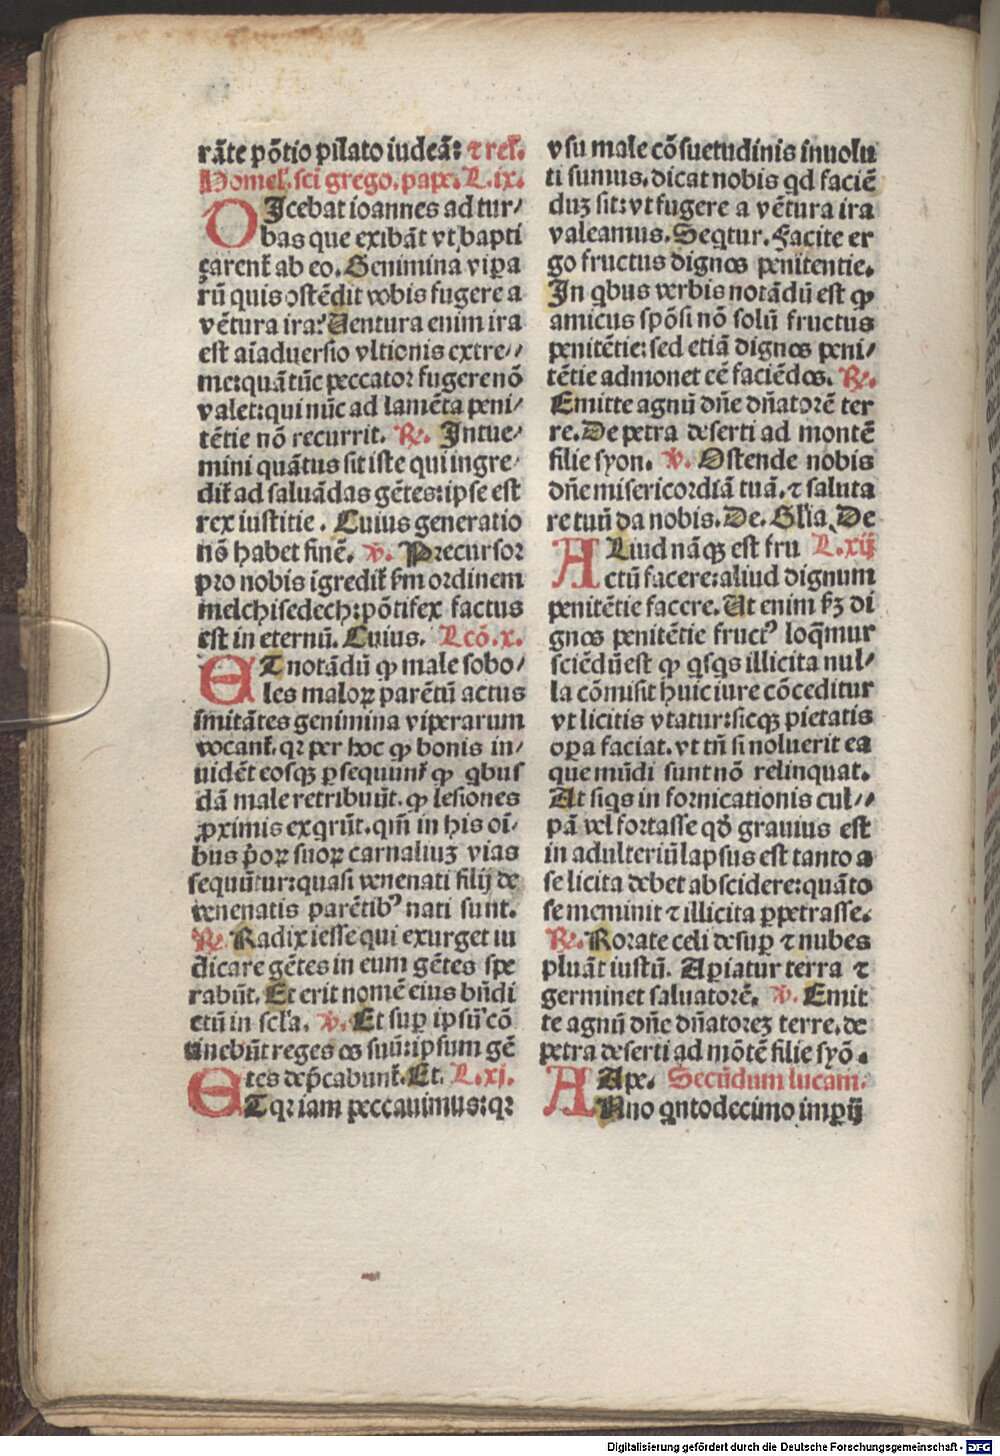 rãte põtio pilato iudeã: ⁊ rel̃.
Homel̃. sci̅ grego. pape. L. ix.
DIcebat ioannes ad tur/
bas que exibãt vt bapti
çarent᷑ ab eo. Genimina vip̲a
rũ quis ꝯstẽdit vobis fugere a
vẽtura ira? Uentura enim ira
est ai̅aduersio vltionis extre//
me: quã tũc peccator fugere nõ
valet: qui nũc ad lamẽta peni/
tẽtie nõ recurrit. ℞. Intue/
mini quãtus sit iste qui ingre/
dit᷑ ad saluãdas gẽtes: ipse est
rex iustitie. Cuius generatio
nõ habet finẽ. ℣. Precursor
pro nobis i̅gredit᷑ ẜm ordinem
melchisedech: põtifex factus
est in eternũ. Cuius. Lcõ. x.
ET notãdũ ꝙ male sobo/
les maloꝝ parẽtũ actus
imitãtes genimina viperarum
vocant᷑. qꝛ per hoc ꝙ bonis in/
uidẽt eosqꝫ ꝑsequunt᷑ ꝙ qͥbus
dã male retribuũt. ꝙ lesiones
ꝓximis exqͥrũt. qm̃ in his oi̅/
bus p̃oꝝ suoꝝ carnaliuꝫ vias
sequũtur: quasi venenati filij de
venenatis parẽtibꝰ nati sunt.
℞. Radix iesse qui exurget iu
dicare gẽtes in eum gẽtes spe
rabũt. Et erit nomẽ eius bñdi
ctũ in scl̃a. ℣. Et suꝑ ipsũ cõ
tinebũt reges os suũ: ipsum gẽ
tes dep̃cabunt᷑. Et. L. xi.
ETqꝛ iam peccauimus: qꝛ
vsu male cõsuetudinis inuolu
ti sumus. dicat nobis qd faciẽ
duꝫ sit: vt fugere a vẽtura ira
valeamus. Seqͥtur. Facite er
go fructus dignos penitentie.
In qͥbus verbis notãdũ est ꝙ
amicus spõsi nõ solũ fructus
penitẽtie: sed etiã dignos peni/
tẽtie admonet eẽ faciẽdos. ℞.
Emitte agnũ dñe dñatorẽ ter
re. De petra deserti ad montẽ
filie syon. ℣. Ostende nobis
dñe misericordiã tuã. ⁊ saluta
re tuũ da nobis. De. Gl̃ia. De
ALiud nãqꝫ est fru L. xij
ctũ facere: aliud dignum
penitẽtie facere. Ut enim ẜꝫ di
gnos penitẽtie fructꝰ loq̃mur
sciẽdũ est ꝙ qͥsqͥs illicita nul/
la cõmisit huic iure cõceditur
vt licitis vtatur: sicqꝫ pietatis
oꝑa faciat. vt tñ si noluerit ea
que mũdi sunt nõ relinquat.
At siqͥs in fornicationis cul//
pã vel fortasse qđ grauius est
in adulteriũ lapsus est tanto a
se licita debet abscidere: quãto
se meminit ⁊ illicita ꝑpetrasse.
℞. Rorate celi desuꝑ ⁊ nubes
pluãt iustũ. Aꝑiatur terra ⁊
germinet saluatorẽ. ℣. Emit
te agnũ dñe dñatoreꝫ terre. de
petra deserti ad mõtẽ filie syõ.
A Ape. Secũdum lucam.
Nno qͥntodecimo imꝑij
Digitalisierung gefördert durch die Deutsche Forschungsgemeinschaft - DFG